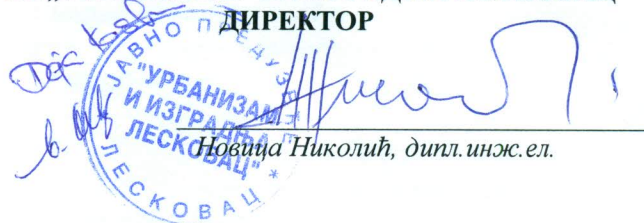 ДИРЕКТОР
ЈАВНО ПРЕДУЗЕЋЕ
"УРБАНИЗАМ
И ИЗГРАДЊА
ЛЕСКОВАЦ"
* ЛЕСКОВАЦ *
Новица Николић, дипл.инж.ел.